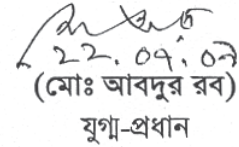 ২২.০৭.০৯
(মোঃ আবদুর রব)
যুগ্ম-প্রধান